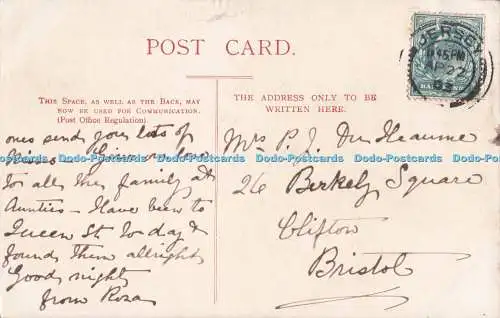 POST CARD.
THIS SPACE, AS WELL AS THE BACK, MAY
NOW BE USED FOR COMMUNICATION.
(Post Office Regulation).
THE ADDRESS ONLY TO BE
WRITTEN HERE.
JERSEY
HALFPENNY
ones send you lots of
kisses Give my love
to all the family at
Aunties - Have been to
Queen St to day &
found them allright
Good night
from Rosa
Mrs P. J. Du Heaume
26 Berkely Square
Clifton
Bristol
Dodo-Postcards Dodo-Postcards Dodo-Postcards Dodo-Postcards Dodo-Postcards Dodo-Postcards